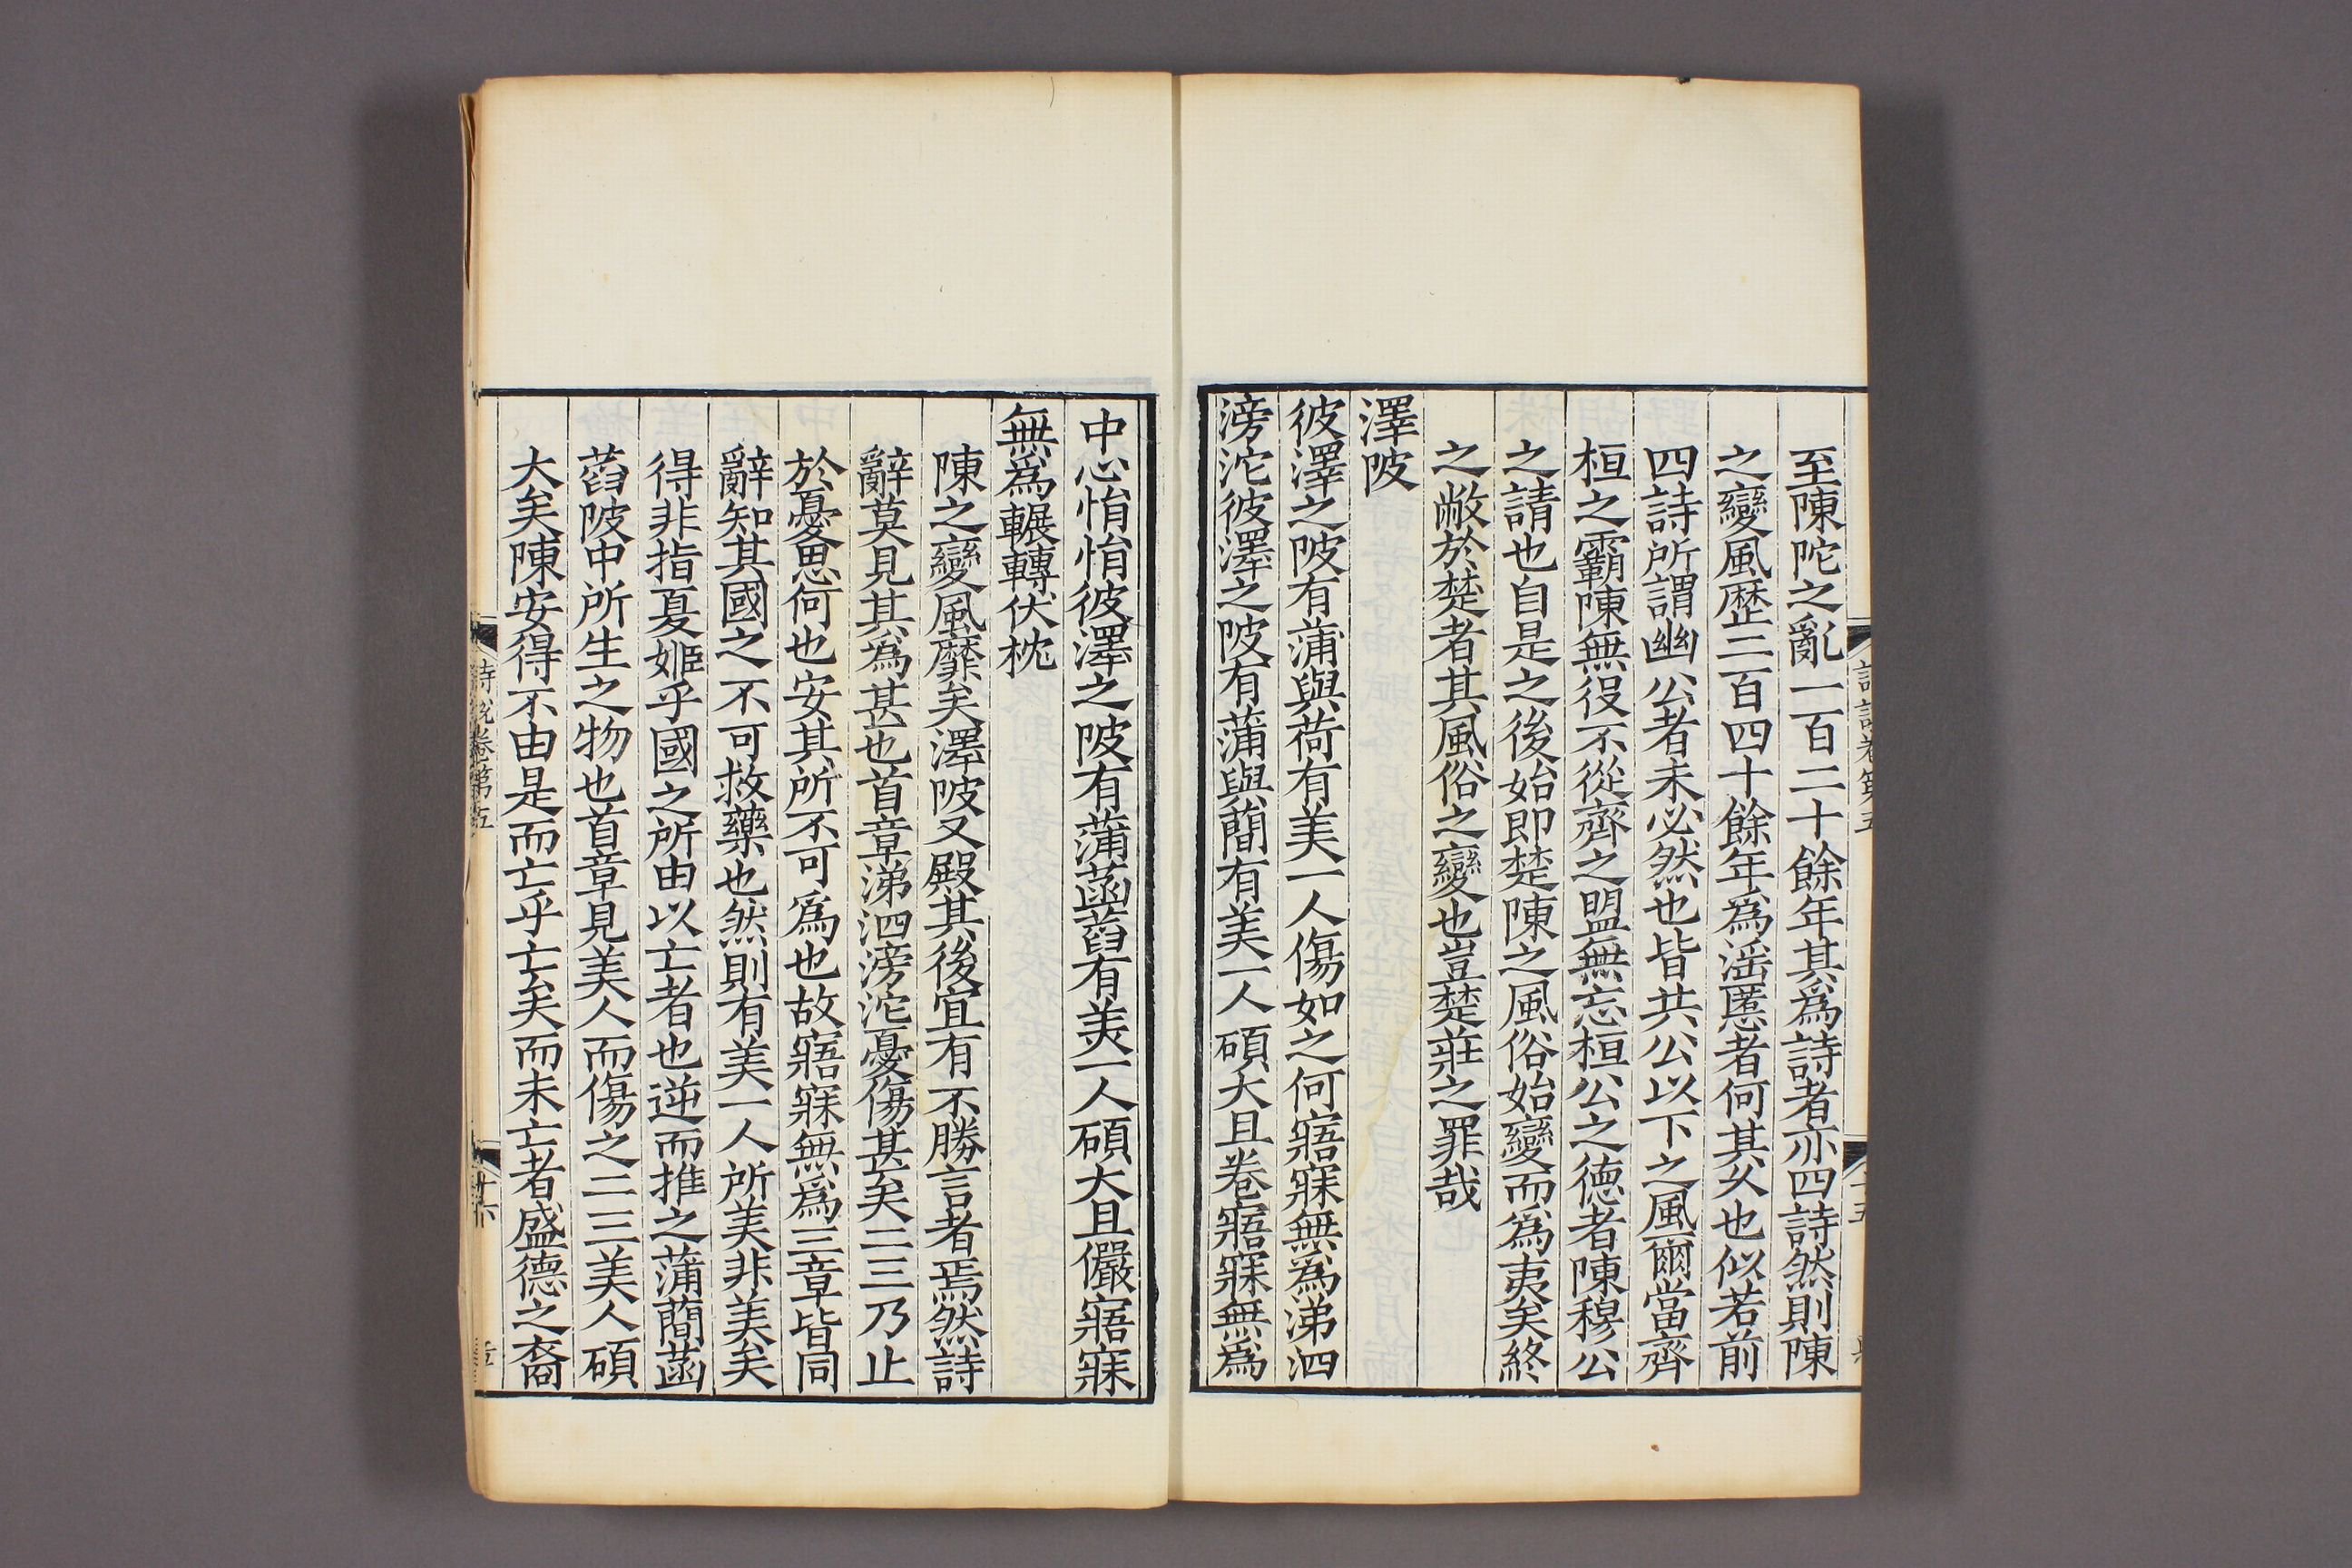 至陳陀之亂一百二十餘年其爲詩者亦四詩然則陳
之變風歷三百四十餘年爲滛慝者何其久也似若前
四詩所謂幽公者未必然也皆共公以下之風爾當齊
桓之霸陳無役不從齊之盟無忘桓公之德者陳穆公
之請也自是之後始即楚陳之風俗始變而爲夷矣終
之敝於楚者其風俗之變也豈楚莊之罪哉
澤陂
彼澤之陂有蒲與荷有美一人傷如之何寤寐無爲涕泗
滂沱彼澤之陂有蒲與蕳有美一人碩大且卷寤寐無爲
中心悁悁彼澤之陂有蒲菡萏有美一人碩大且儼寤寐
無爲輾轉伏枕
陳之變風靡矣澤陂又殿其後宜有不勝言者焉然詩
辭莫見其爲甚也首章涕泗滂沱憂傷甚矣二三乃止
於憂思何也安其所不可爲也故寤寐無爲三章皆同
辭知其國之不可救藥也然則有美一人所美非美矣
得非指夏姬乎國之所由以亡者也逆而推之蒲蕳菡
萏陂中所生之物也首章見美人而傷之二三美人碩
大矣陳安得不由是而亡乎亡矣而未亡者盛德之裔
詩說卷第五
廿六